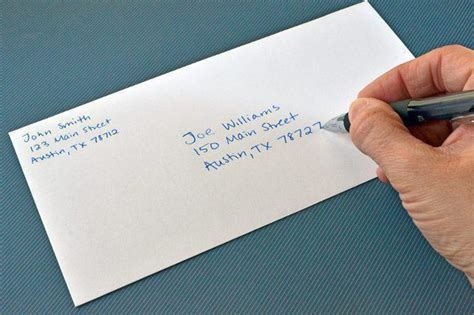 John Smith
123 Main Street
Austin, TX 78712
Joe Williams
150 Main Street
Austin, TX 78727